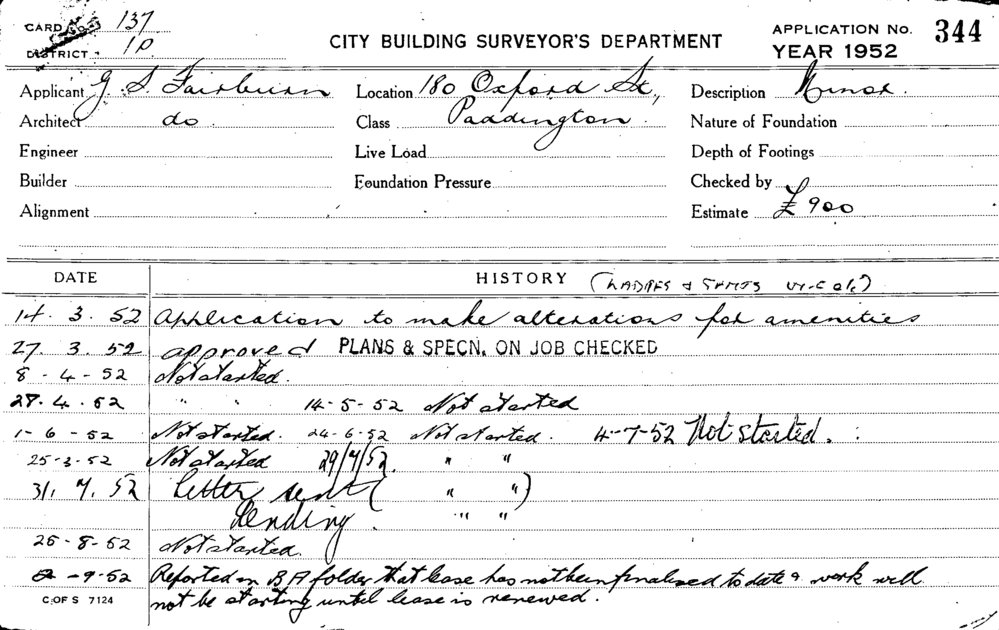 CARD No. 137
DISTRICT 1D
CITY BUILDING SURVEYOR'S DEPARTMENT
APPLICATION No. 344
YEAR 1952
Applicant J. S. Fairburn Location 180 Oxford St, Description Minor.
Architect do Class Paddington. Nature of Foundation
Engineer Live Load Depth of Footings
Builder Foundation Pressure Checked by
Alignment Estimate £900
DATE HISTORY (LADIES & GENTS
14. 3. 52 Application to make alterations for amenities
27. 3. 52 approved PLANS & SPECN. ON JOB CHECKED
8 - 4 - 52 Not started.
28. 4. 52 " " 14-5-52 Not started
1- 6 - 52 Not started. 24-6-52 Not started. 4-7-52 Not started.
25-3-52 Not started 29/7/52. " "
31. 7. 52 Letter sent ( " " )
Pending. " "
25-8-52 Not started.
-9-52 Reported on BA folder that lease has not been finalised to date & work will
not be starting until lease is renewed.
C.OF S 7124